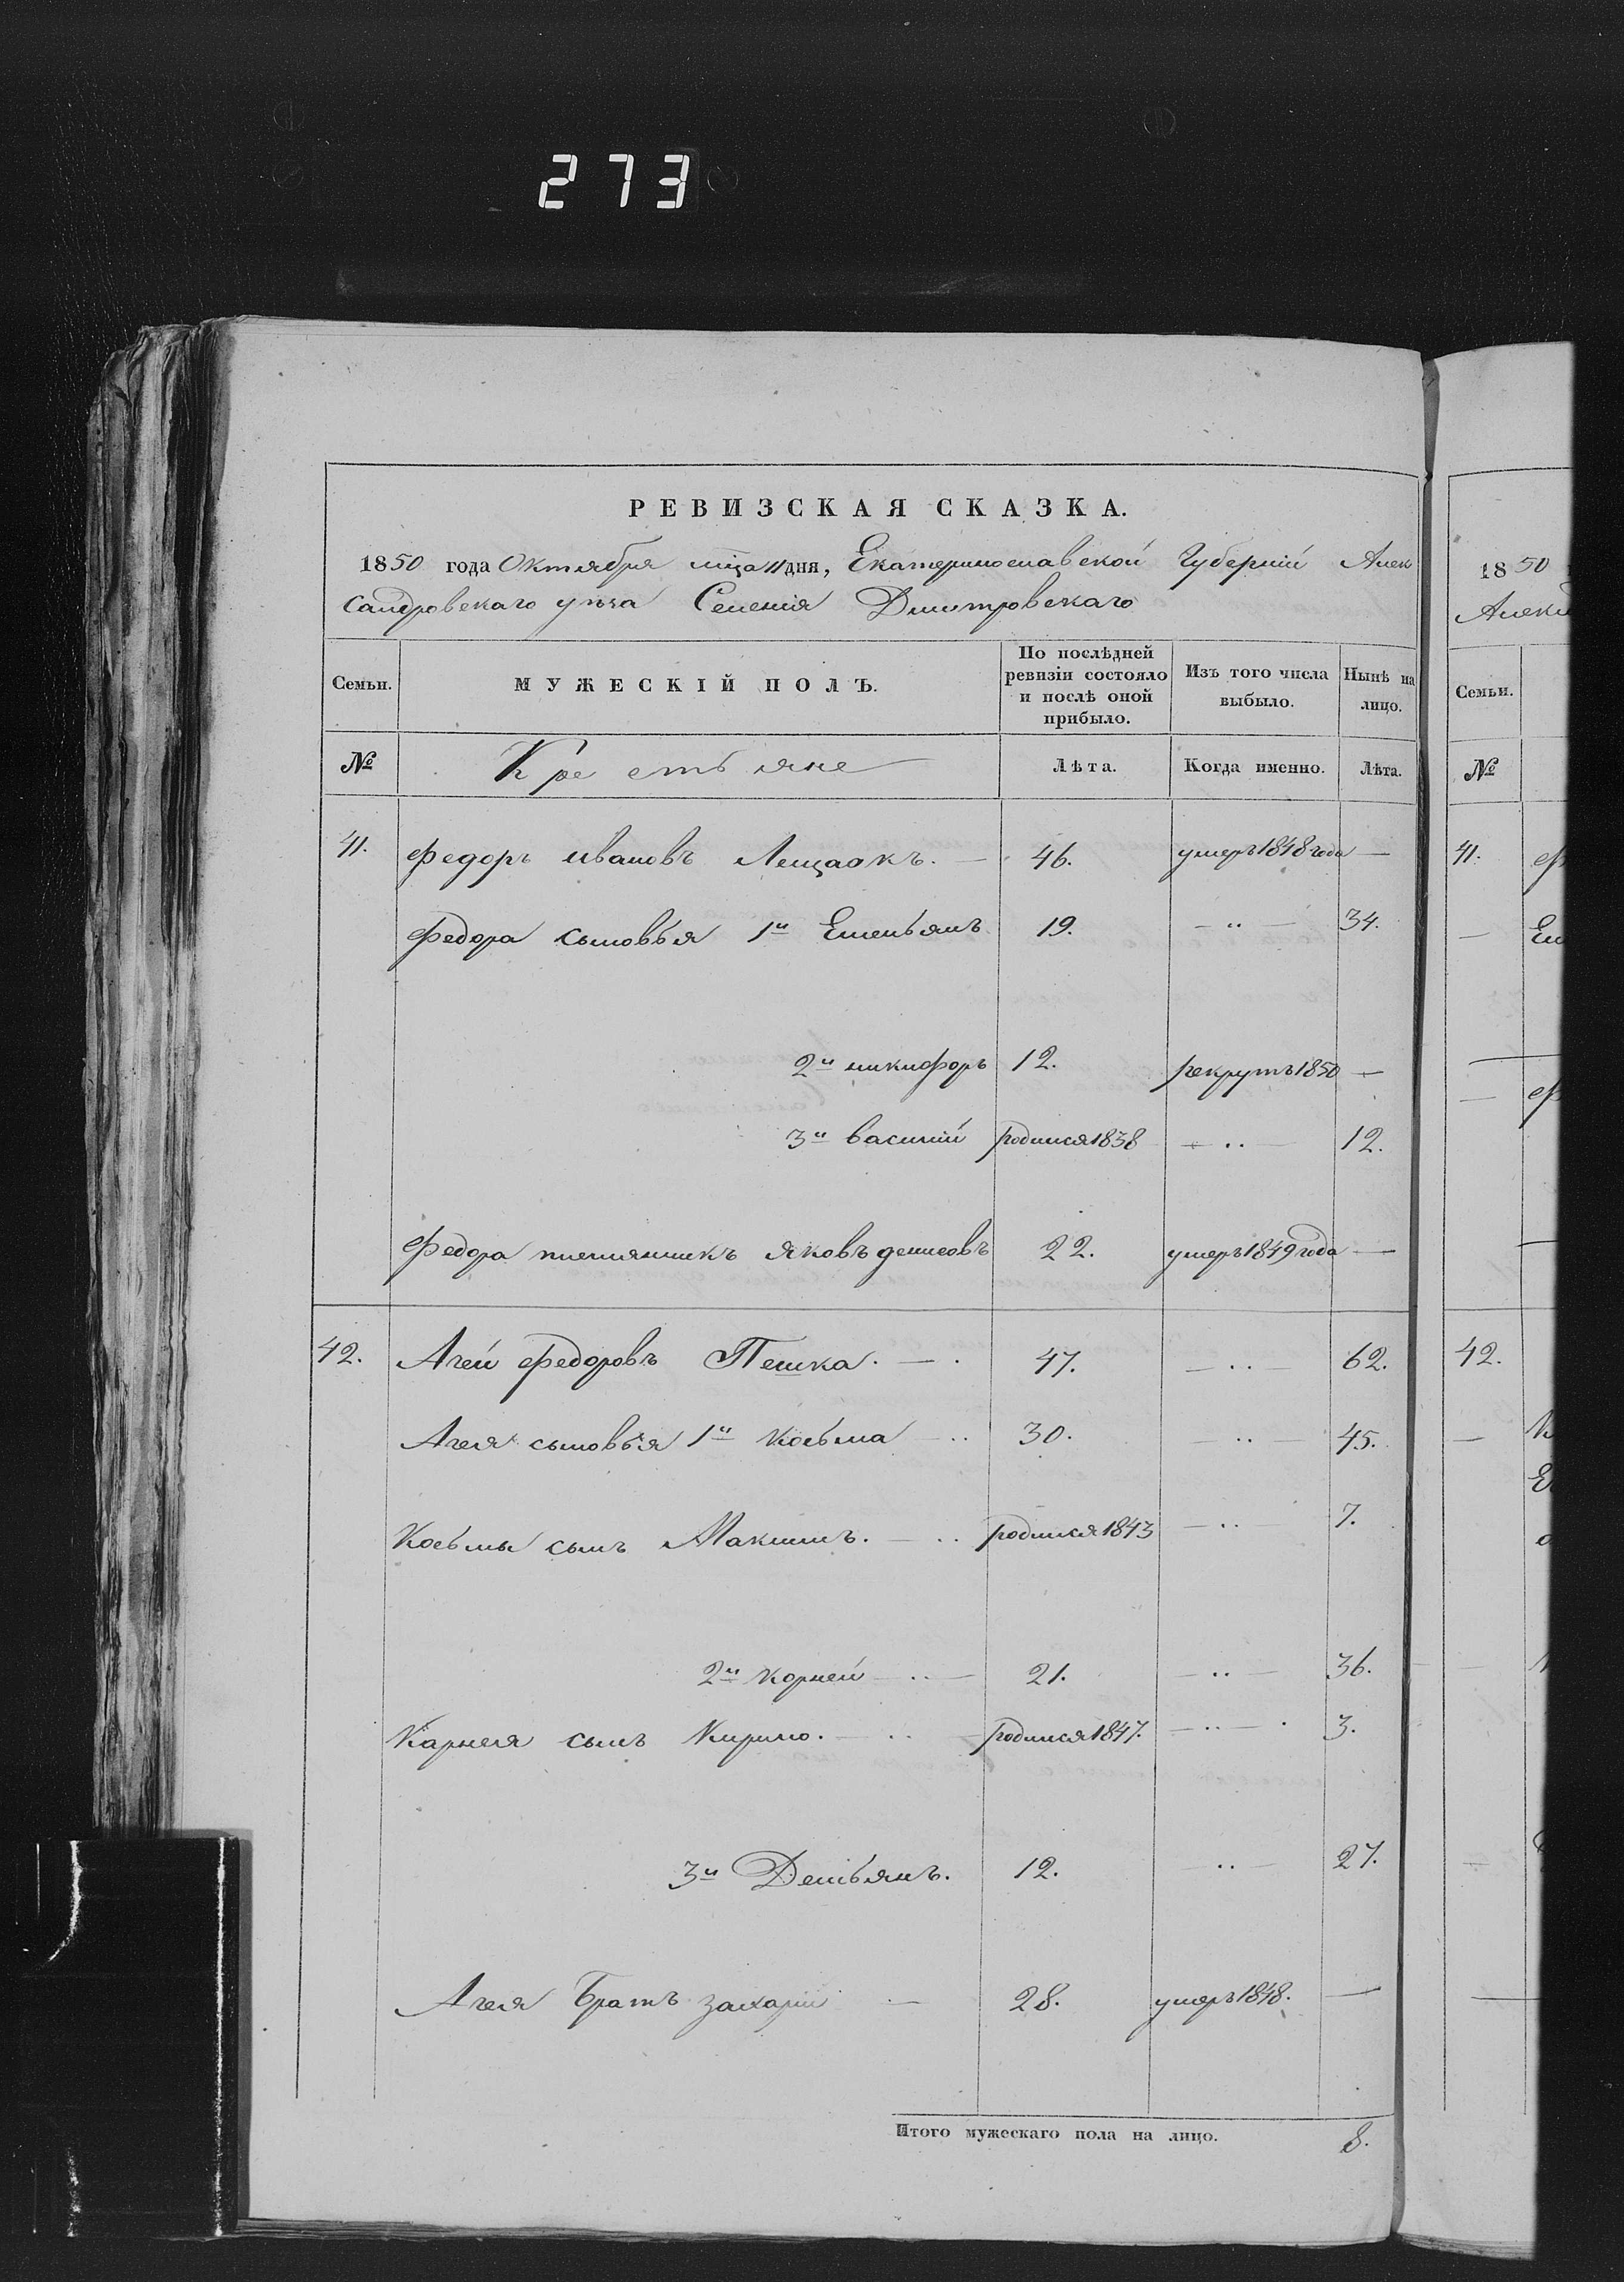 273
РЕВИЗСКАЯ СКАЗКА.
1850 года Октября мца 11 дня, Екатеринославской Губерніи Алек
сандровскаго уѣзда Селенія Дмитровскаго
Семьи. МУЖЕСКІЙ ПОЛЪ. По послѣдней ревизіи состояло и послѣ оной прибыло. Изъ того числа выбыло. Нынѣ на лицо.
№ Крестьяне Лѣта. Когда именно. Лѣта.
41. Федоръ Ивановъ 46. умеръ 1848 года —
Федора сыновья 1й Емельянъ 19. — " — 34.
2й Никифоръ 12. рекрутъ 1850 —
3й Василий родился 1838 — " — 12.
Федора племянникъ Яковъ Денисовъ 22. умеръ 1849 года —
42. Агей Федоровъ Пешка. — . 47. — " — 62.
Агея сыновья 1й Косьма — " 30. — " — 45.
Косьмы сынъ Макимъ. — " родился 1843 — " — 7.
2й Корней — " — 21. — " — 36.
Карнея сынъ Кирило. — " — родился 1847. — " — 3.
3й Демьянъ. 12. " — 27.
Агея Братъ Захарий — 28. умеръ 1848. —
Итого мужескаго пола на лицо. 8.
1850
Семьи.
№
41.
42.